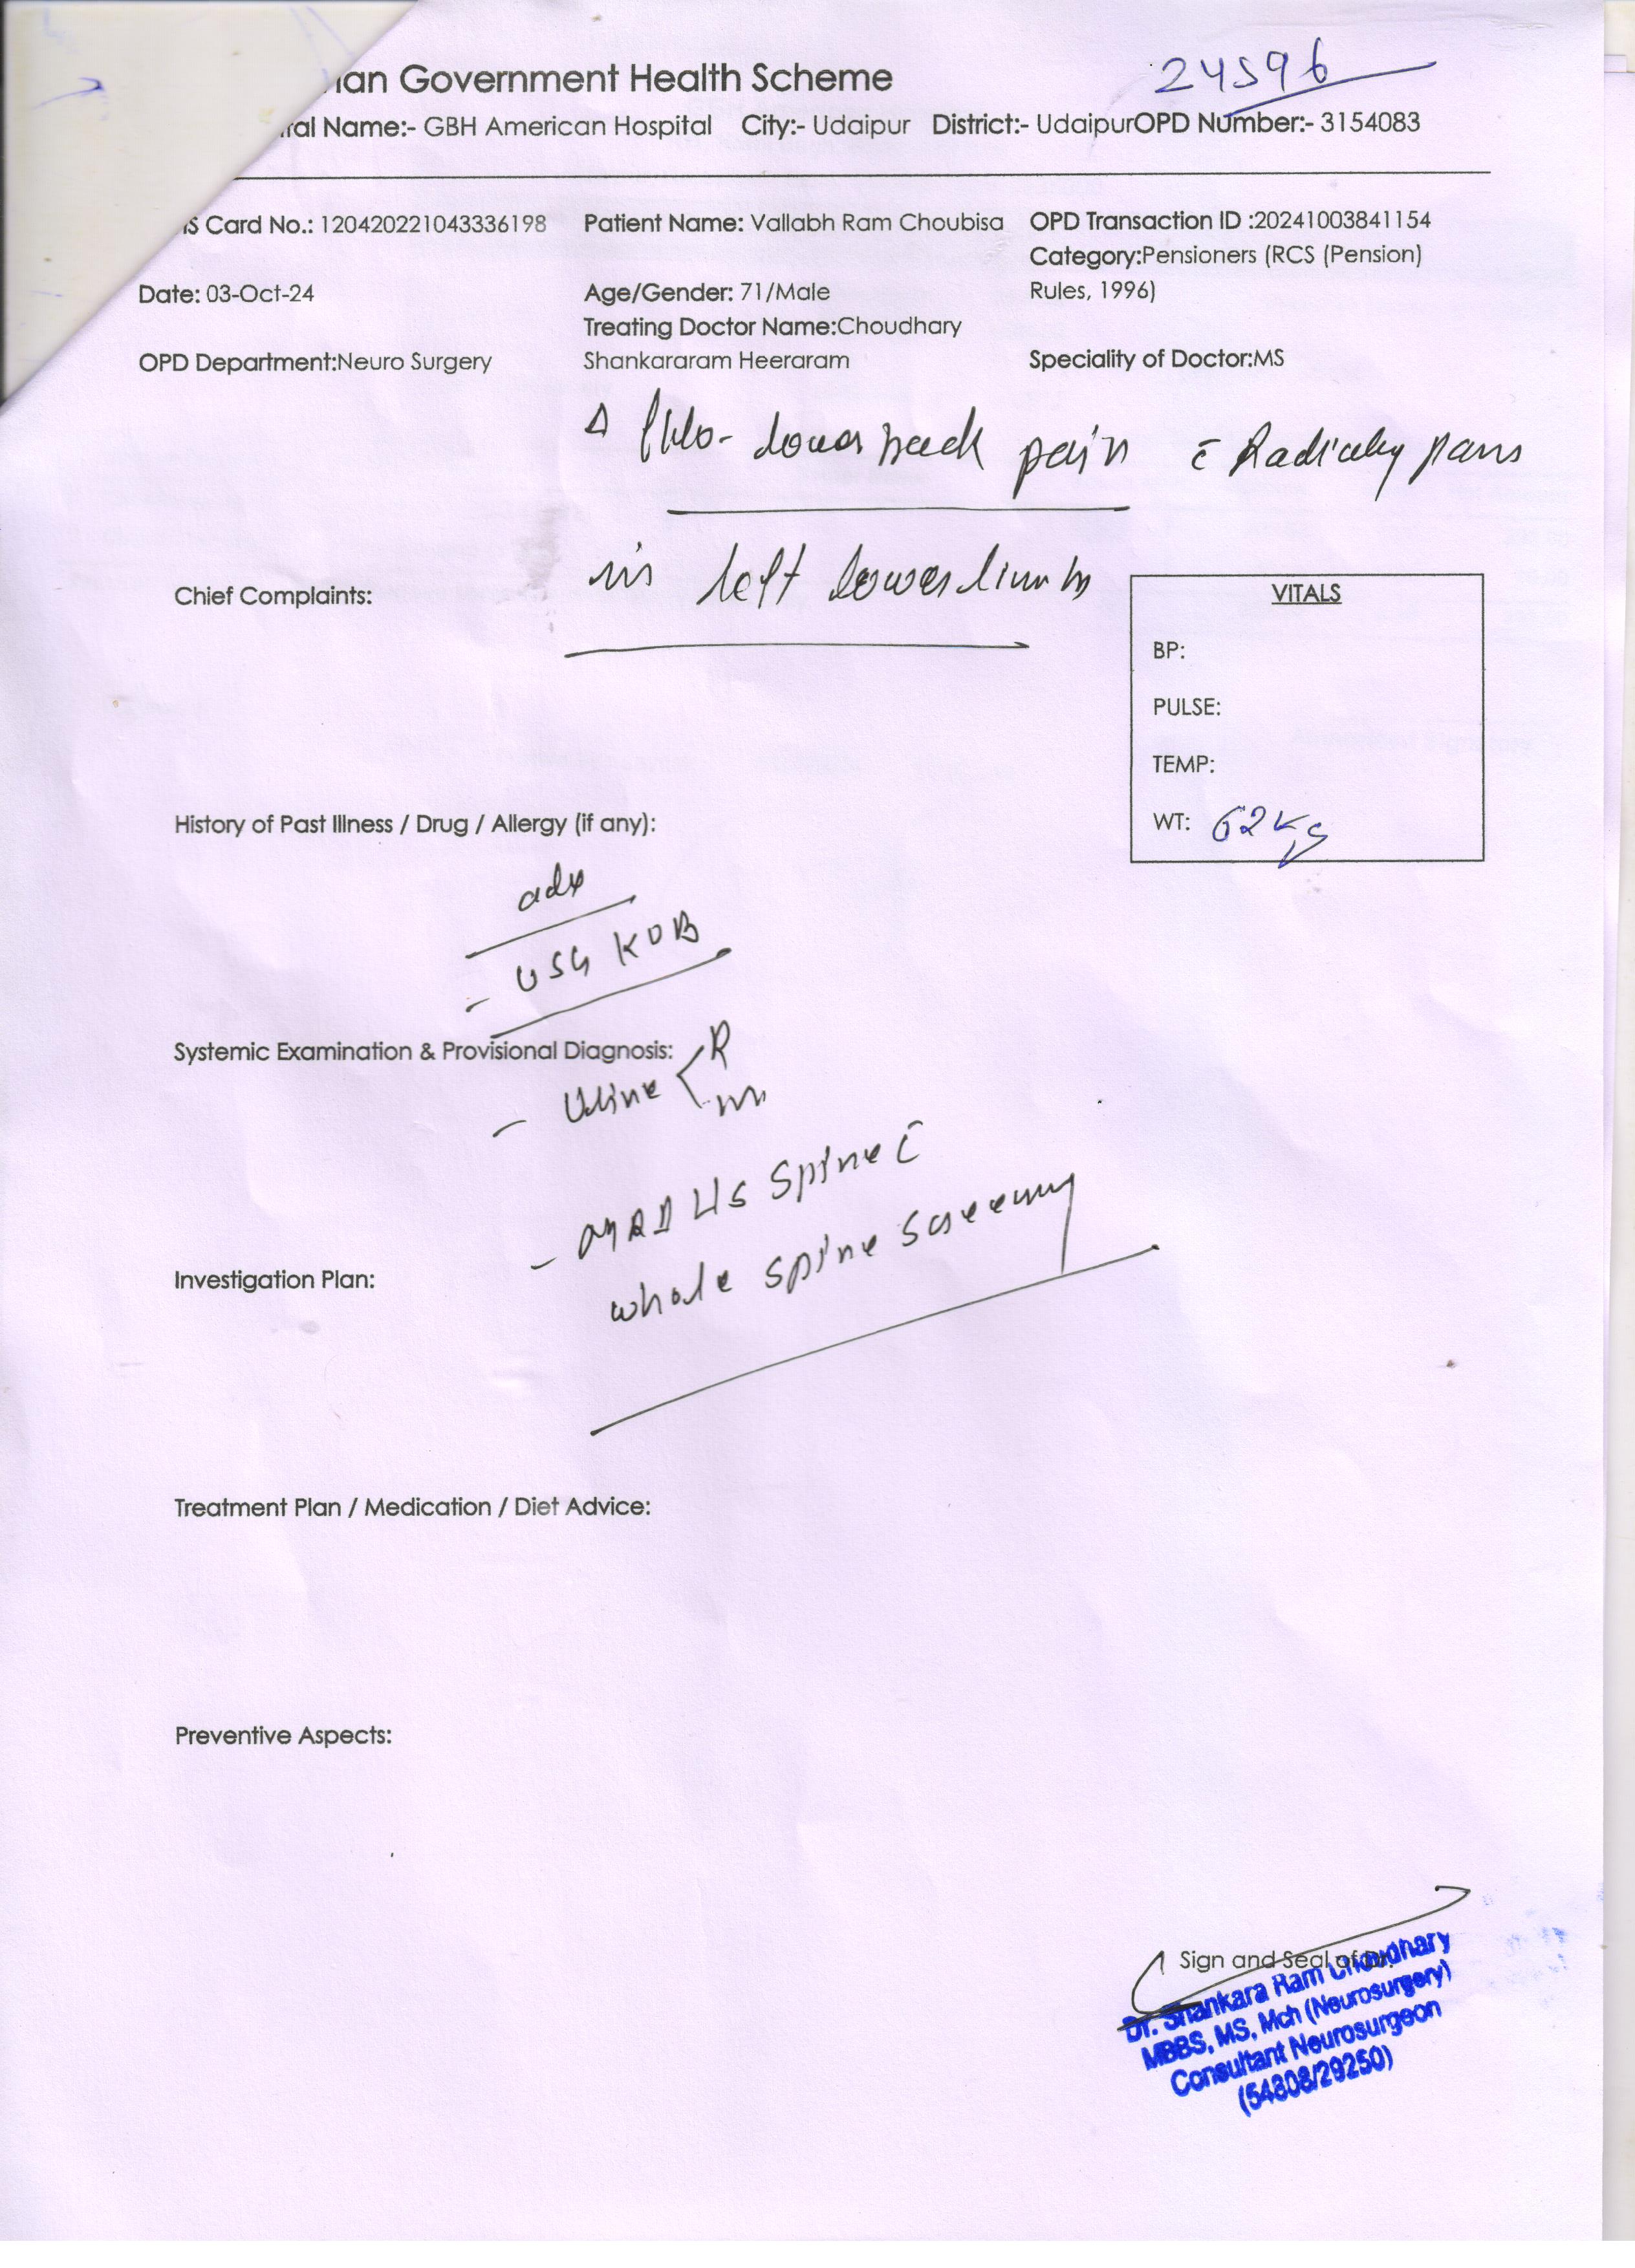 an Government Health Scheme
24596
ral Name:- GBH American Hospital City:- Udaipur District:- UdaipurOPD Number:- 3154083
S Card No.: 120420221043336198 Patient Name: Vallabh Ram Choubisa OPD Transaction ID :20241003841154
Category:Pensioners (RCS (Pension)
Date: 03-Oct-24 Age/Gender: 71/Male Rules, 1996)
Treating Doctor Name:Choudhary
OPD Department:Neuro Surgery Shankararam Heeraram Speciality of Doctor:MS
lower back pain c̄ Radiating pain
in left lower limb
Chief Complaints:
VITALS
BP:
PULSE:
TEMP:
WT: 62 Kg
History of Past Illness / Drug / Allergy (if any):
adv
- USG KUB
Systemic Examination & Provisional Diagnosis:
- Urine R
m
- MRI L/S Spine c̄
whole spine screening
Investigation Plan:
Treatment Plan / Medication / Diet Advice:
Preventive Aspects:
Sign and Seal of Dr.
Dr. Shankara Ram Choudhary
MBBS, MS, Mch (Neurosurgery)
Consultant Neurosurgeon
(54808/29250)